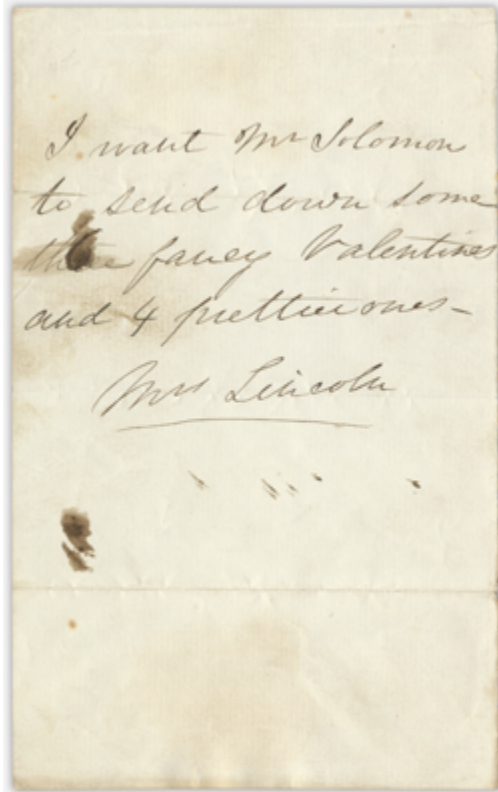 I want Mr Solomon
to send down some
fancy Valentines
and 4 prettier ones –
Mrs Lincoln